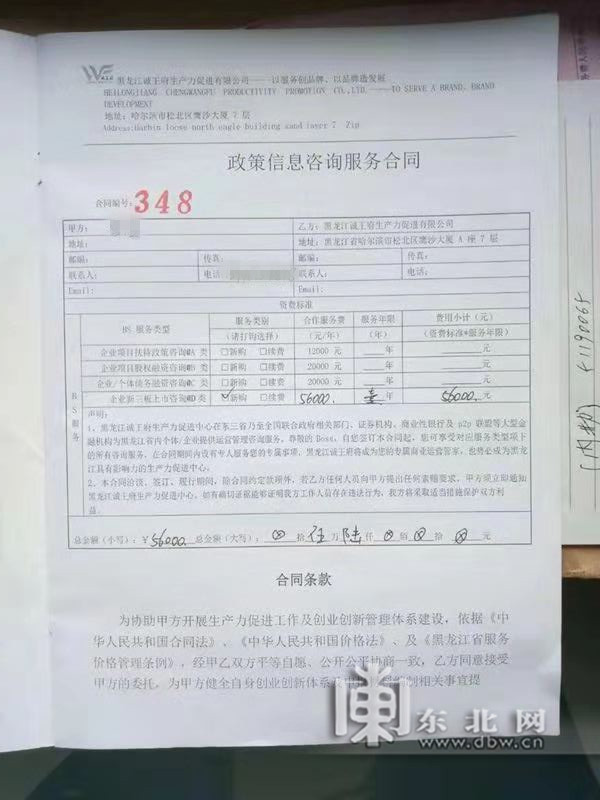 黑龙江诚王府生产力促进有限公司——以服务创品牌、以品牌造发展
HEILONGJIANG CHENGWANGFU PRODUCTIVITY PROMOTION CO.,LTD.——TO SERVE A BRAND, BRAND
DEVELOPMENT
地址：哈尔滨市松北区鹰沙大厦 7 层
Address:Harbin loose north eagle building sand layer 7 Zip
政策信息咨询服务合同
合同编号：348
甲方： 乙方：黑龙江诚王府生产力促进有限公司
地址： 地址：黑龙江省哈尔滨市松北区鹰沙大厦 A 座 7 层
邮编： 传真： 邮编： 传真：
联系人： 电话 联系人： 电话：
Email: Email:
资费标准
BS 服务
BS 服务类型 服务类别（请打钩选择） 合作服务费（元/年） 服务年限（年） 费用小计（元）（资费标准*服务年限）
企业项目扶持政策咨询№A 类 □新购 □续费 12000 元 ____年 ____元
企业项目股权融资咨询№B 类 □新购 □续费 20000 元 ____年 ____元
企业/个体债务融资咨询№C 类 □新购 □续费 20000 元 ____年 ____元
企业新三板上市咨询№D 类 ☑新购 □续费 56000. 元 壹年 56000.元
声明：
1、黑龙江诚王府生产力促进中心在东三省乃至全国联合政府相关部门、证券机构、商业性银行及 p2p 联盟等大型金
融机构为黑龙江省内个体/企业提供运营管理咨询服务。尊敬的 Boss，自您签订本合同起，您可享受对应服务类型项下
的所有咨询服务。在合同期间内设有专人服务您的专属事项，黑龙江诚王府将成为您的专属商业运营管家，也势必成为黑龙
江具有影响力的生产力促进中心。
2、本合同洽谈、签订、履行期间，除合同约定款项外，若乙方任何人员向甲方提出任何索赔要求，甲方须立即通知
黑龙江诚王府生产力促进中心，如有确切证据能够证明我方工作人员存在违法行为，我方将采取适当措施保护双方利
益。
总金额（小写）：￥56000. 总金额（大写）：⊗ 拾 伍 万 陆 仟 ⊗ 佰 ⊗ 拾 ⊗ 元
合同条款
为协助甲方开展生产力促进工作及创业创新管理体系建设，依据《中
华人民共和国合同法》、《中华人民共和国价格法》、及《黑龙江省服务
价格管理条例》，经甲乙双方平等自愿、公开公平协商一致，乙方同意接受
甲方的委托，为甲方健全自身创业创新体系及 制相关事宜提
东北网
www.dbw.cn